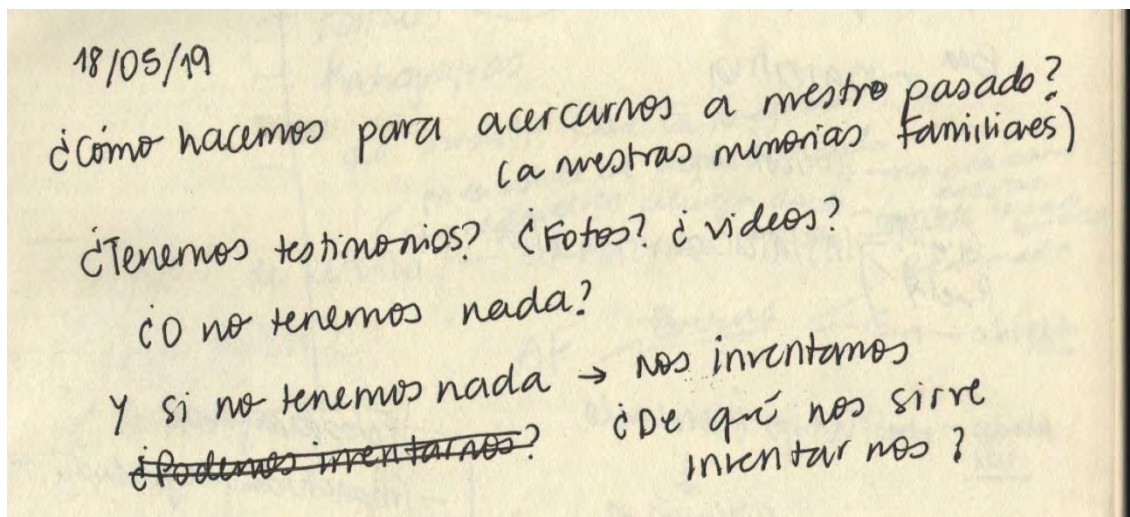 18/05/19
¿Cómo hacemos para acercarnos a nuestro pasado?
(a nuestras memorias familiares)
¿Tenemos testimonios? ¿Fotos? ¿videos?
¿O no tenemos nada?
Y si no tenemos nada → Nos inventamos
¿Podemos inventarnos? ¿De qué nos sirve
inventarnos?